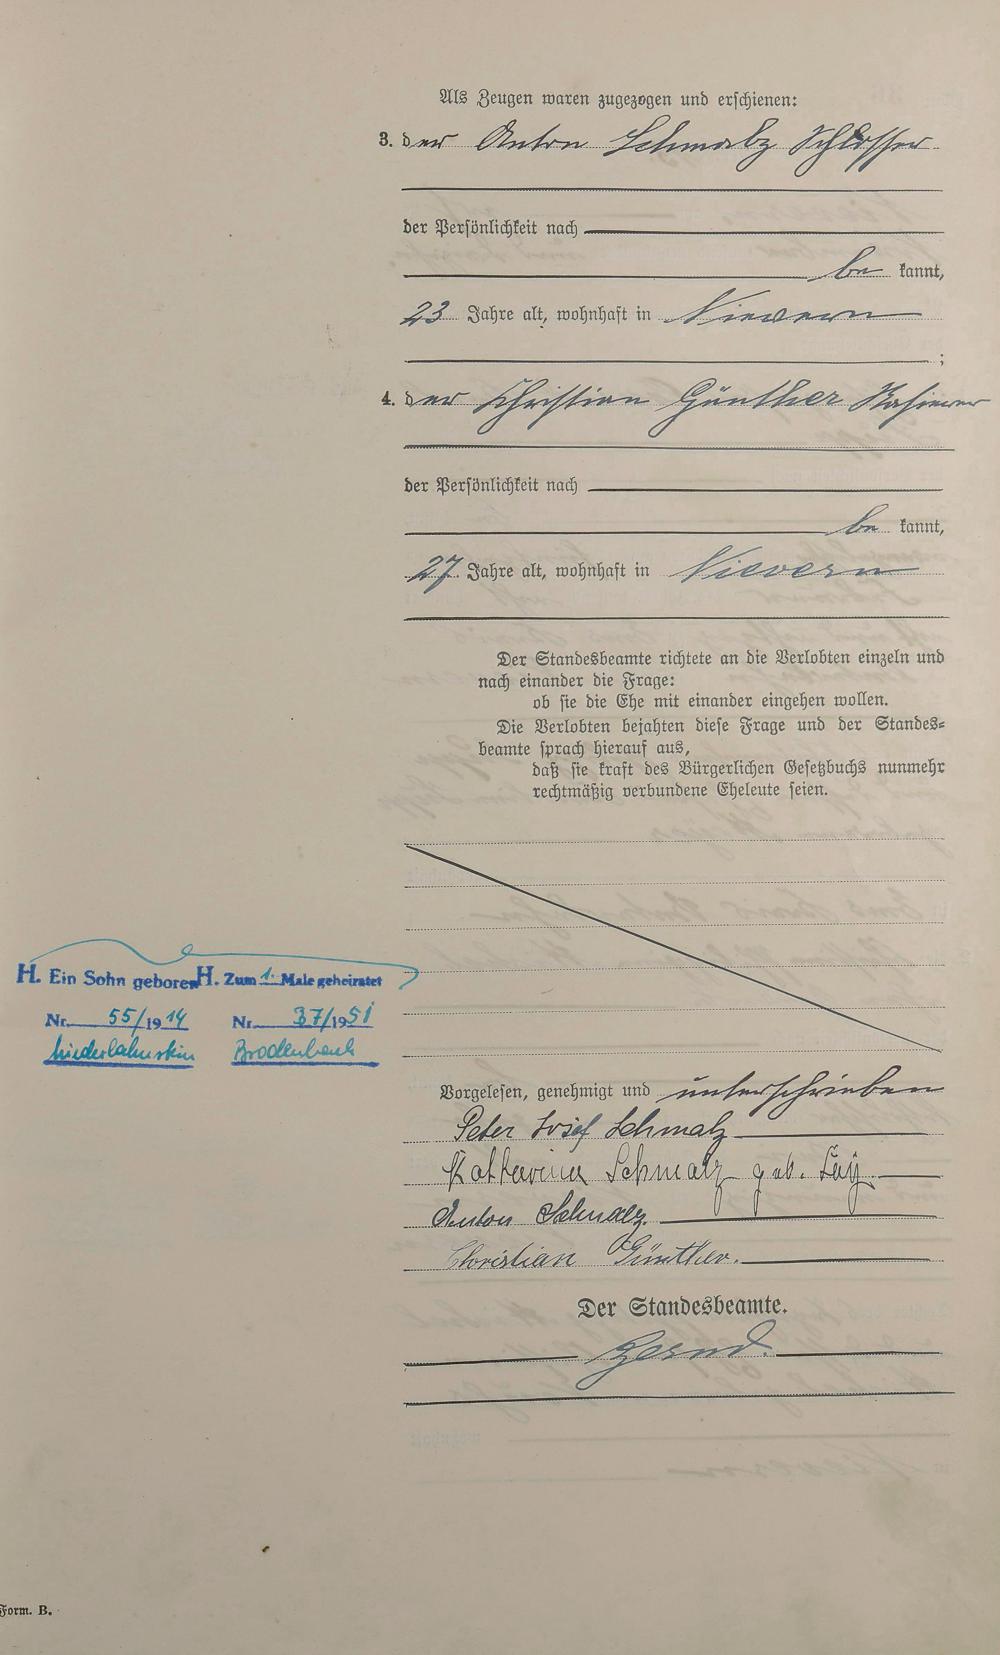 Als Zeugen waren zugezogen und erschienen:
3. der Anton Schmalz Schlosser
der Persönlichkeit nach
be kannt,
23 Jahre alt, wohnhaft in Nievern
;
4. der Christian Günther
der Persönlichkeit nach
be kannt,
27 Jahre alt, wohnhaft in Nievern
Der Standesbeamte richtete an die Verlobten einzeln und
nach einander die Frage:
ob sie die Ehe mit einander eingehen wollen.
Die Verlobten bejahten diese Frage und der Standes-
beamte sprach hierauf aus,
daß sie kraft des Bürgerlichen Gesetzbuchs nunmehr
rechtmäßig verbundene Eheleute seien.
H. Ein Sohn geboren
Nr. 55/1914
Niederlahnstein
H. Zum 1. Male geheiratet
Nr. 37/1951
Brodenbach
Vorgelesen, genehmigt und unterschrieben
Peter Josef Schmalz
Katharina Schmalz geb. Lay
Anton Schmalz.
Christian Günther.
Der Standesbeamte.
Form. B.